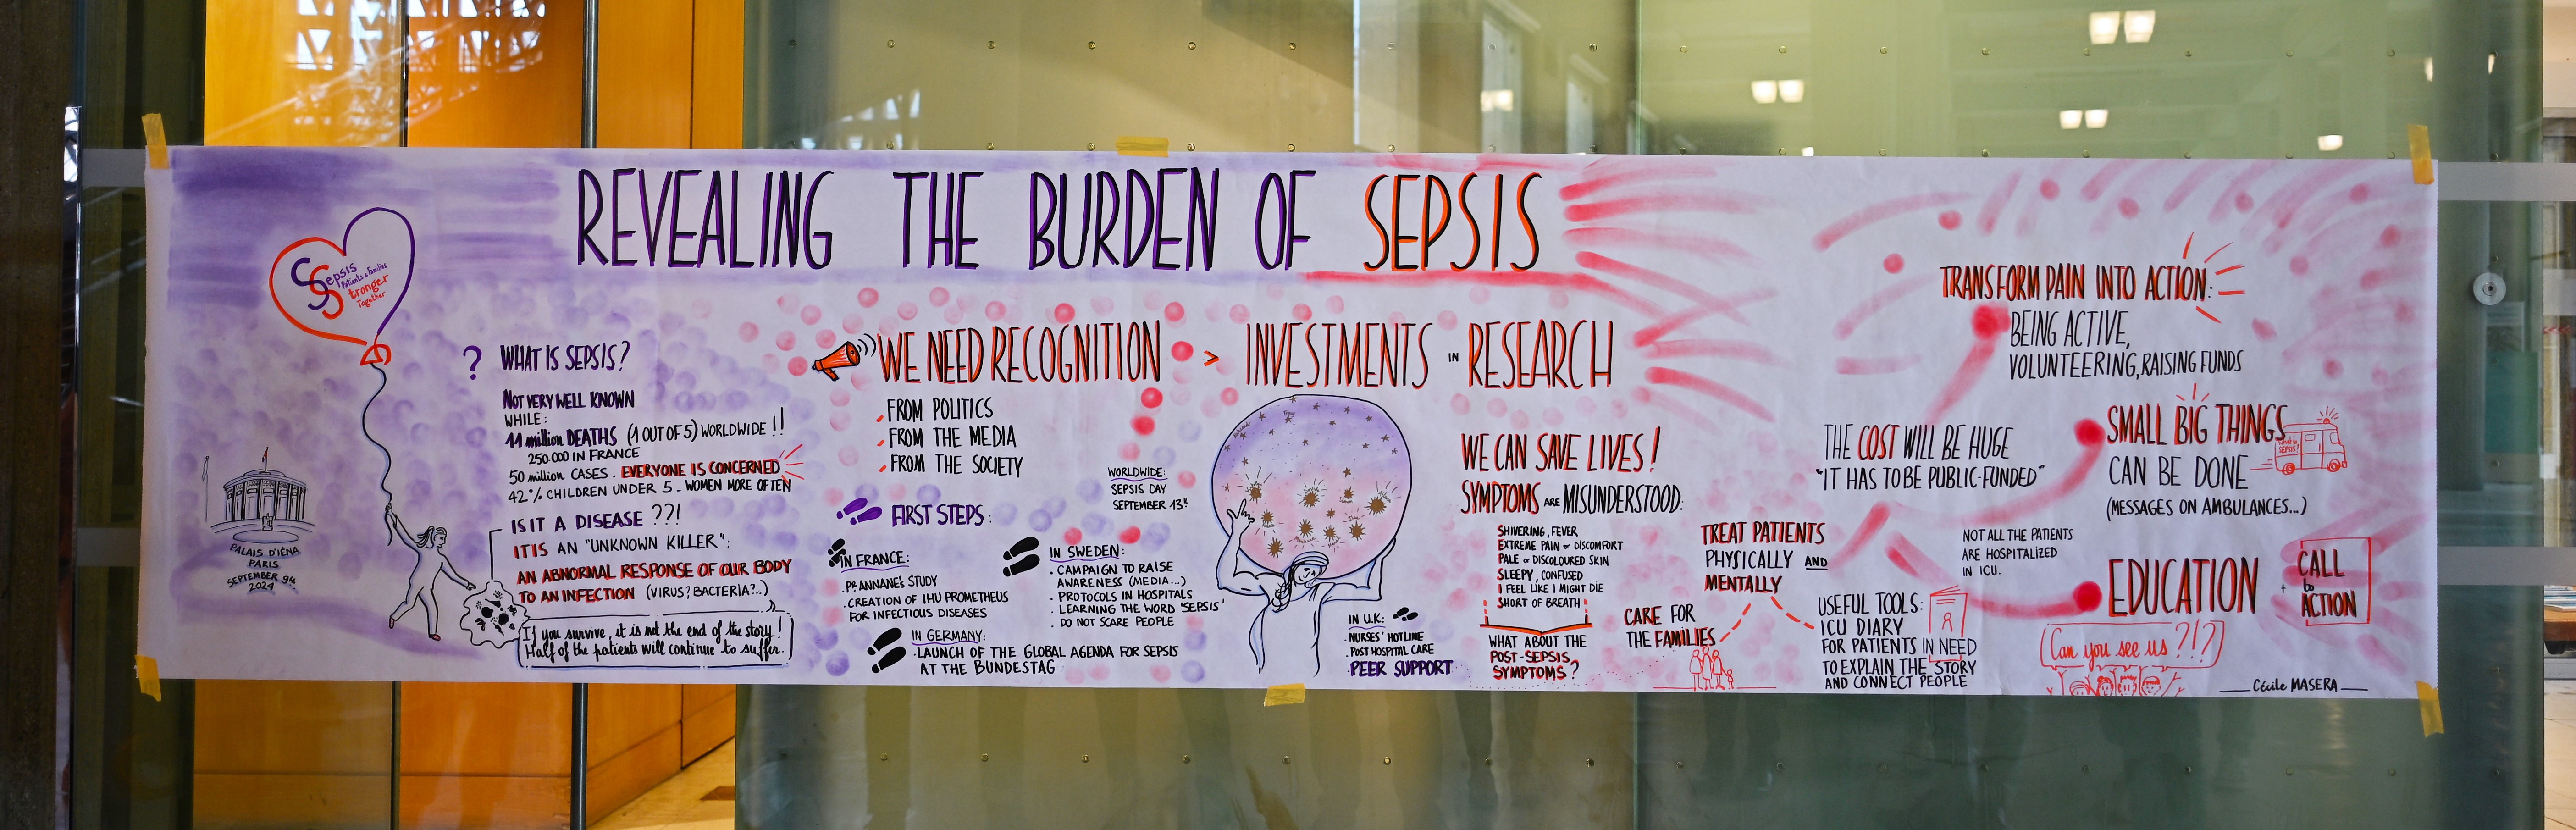 REVEALING THE BURDEN OF SEPSIS
Sepsis
Patients & Families
Stronger
Together
PALAIS D'IÉNA
PARIS
SEPTEMBER 9th
2024
? WHAT IS SEPSIS?
NOT VERY WELL KNOWN
WHILE:
11 million DEATHS (1 OUT OF 5) WORLDWIDE !!
250.000 IN FRANCE
50 million CASES. EVERYONE IS CONCERNED
42% CHILDREN UNDER 5 - WOMEN MORE OFTEN
IS IT A DISEASE ??!
IT IS AN "UNKNOWN KILLER":
AN ABNORMAL RESPONSE OF OUR BODY
TO AN INFECTION (VIRUS? BACTERIA?..)
If you survive, it is not the end of the story!
Half of the patients will continue to suffer.
WE NEED RECOGNITION > INVESTMENTS IN RESEARCH
FROM POLITICS
FROM THE MEDIA
FROM THE SOCIETY
WORLDWIDE:
SEPSIS DAY
SEPTEMBER 13th
FIRST STEPS:
IN FRANCE:
PR ANNANE'S STUDY
. CREATION OF IHU PROMETHEUS
FOR INFECTIOUS DISEASES
IN SWEDEN:
. CAMPAIGN TO RAISE
AWARENESS (MEDIA...)
. PROTOCOLS IN HOSPITALS
. LEARNING THE WORD 'SEPSIS'
. DO NOT SCARE PEOPLE
IN GERMANY:
. LAUNCH OF THE GLOBAL AGENDA FOR SEPSIS
AT THE BUNDESTAG
IN U.K:
. NURSES' HOTLINE
. POST HOSPITAL CARE
. PEER SUPPORT
WE CAN SAVE LIVES!
SYMPTOMS ARE MISUNDERSTOOD:
SHIVERING, FEVER
EXTREME PAIN or DISCOMFORT
PALE or DISCOLOURED SKIN
SLEEPY, CONFUSED
I FEEL LIKE I MIGHT DIE
SHORT OF BREATH
WHAT ABOUT THE
POST-SEPSIS
SYMPTOMS?
TREAT PATIENTS
PHYSICALLY AND
MENTALLY
CARE FOR
THE FAMILIES
USEFUL TOOLS:
ICU DIARY
FOR PATIENTS IN NEED
TO EXPLAIN THE STORY
AND CONNECT PEOPLE
THE COST WILL BE HUGE
"IT HAS TO BE PUBLIC-FUNDED"
NOT ALL THE PATIENTS
ARE HOSPITALIZED
IN ICU.
TRANSFORM PAIN INTO ACTION:
BEING ACTIVE,
VOLUNTEERING, RAISING FUNDS
SMALL BIG THINGS
CAN BE DONE
(MESSAGES ON AMBULANCES...)
EDUCATION +
CALL
to
ACTION
Can you see us ?!?
Cécile MASERA